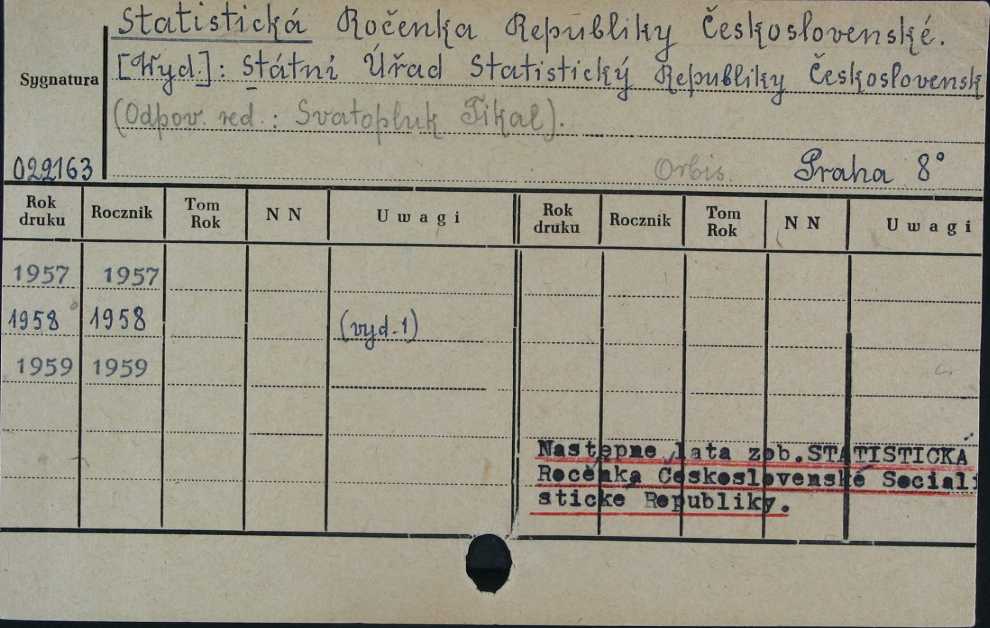 Statistická Ročenka Republiky Československé.
[Wyd.]: Státní Úřad Statistický Republiky Československ
Sygnatura
(Odpov. red.: Svatopluk Tikal).
022163 Orbis. Praha 8°
Rok druku Rocznik Tom Rok N N Uwagi Rok druku Rocznik Tom Rok N N Uwagi
1957 1957
1958 1958 (vyd. 1)
1959 1959
Następne lata zob. STATISTICKÁ
Ročenka Československé Sociali
stické Republiky.